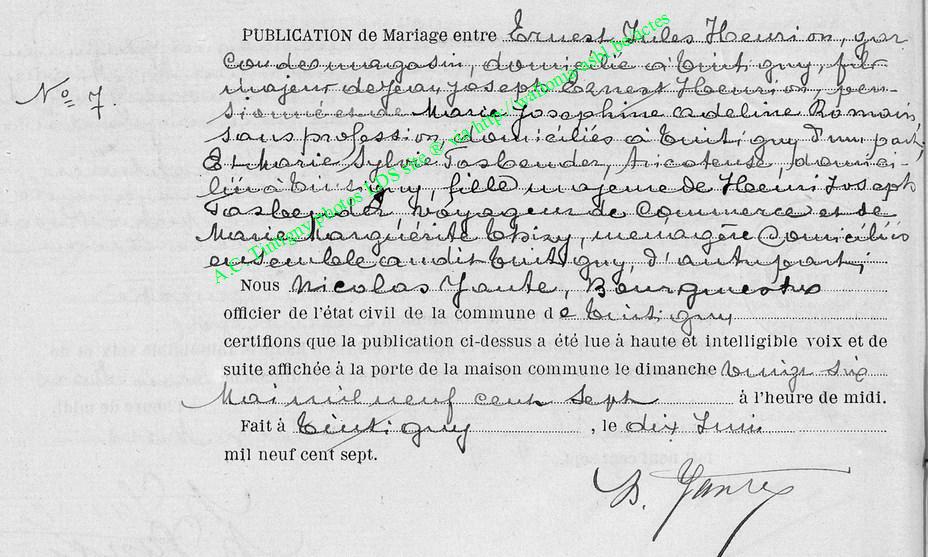 PUBLICATION de Mariage entre Ernest Jules Henrion, gar
çon de magasin, domicilié à Tintigny, fils
majeur de Jean Joseph Ernest Henrion, pen-
No 7.
sionné et de Marie Josephine Adeline Romain,
sans profession, domiciliés à Tintigny d'une part,
Et Marie Sylvie Fasbender, Tricoteuse, domici-
liée à Tintigny, fille majeure de Henri Joseph
Fasbender Voyageur de Commerce et de
Marie Marguérite Thiry, menagère domiciliés
ensemble audit Tintigny, d'autre part;
A.C. Tintigny photos LDS site ® via http://wallonia-asbl.be/actes
Nous Nicolas Yante, Bourgmestre
officier de l'état civil de la commune de Tintigny
certifions que la publication ci-dessus a été lue à haute et intelligible voix et de
suite affichée à la porte de la maison commune le dimanche vingt six
Mai mil neuf cent sept à l'heure de midi.
Fait à Tintigny, le dix Juin
mil neuf cent sept.
Yante